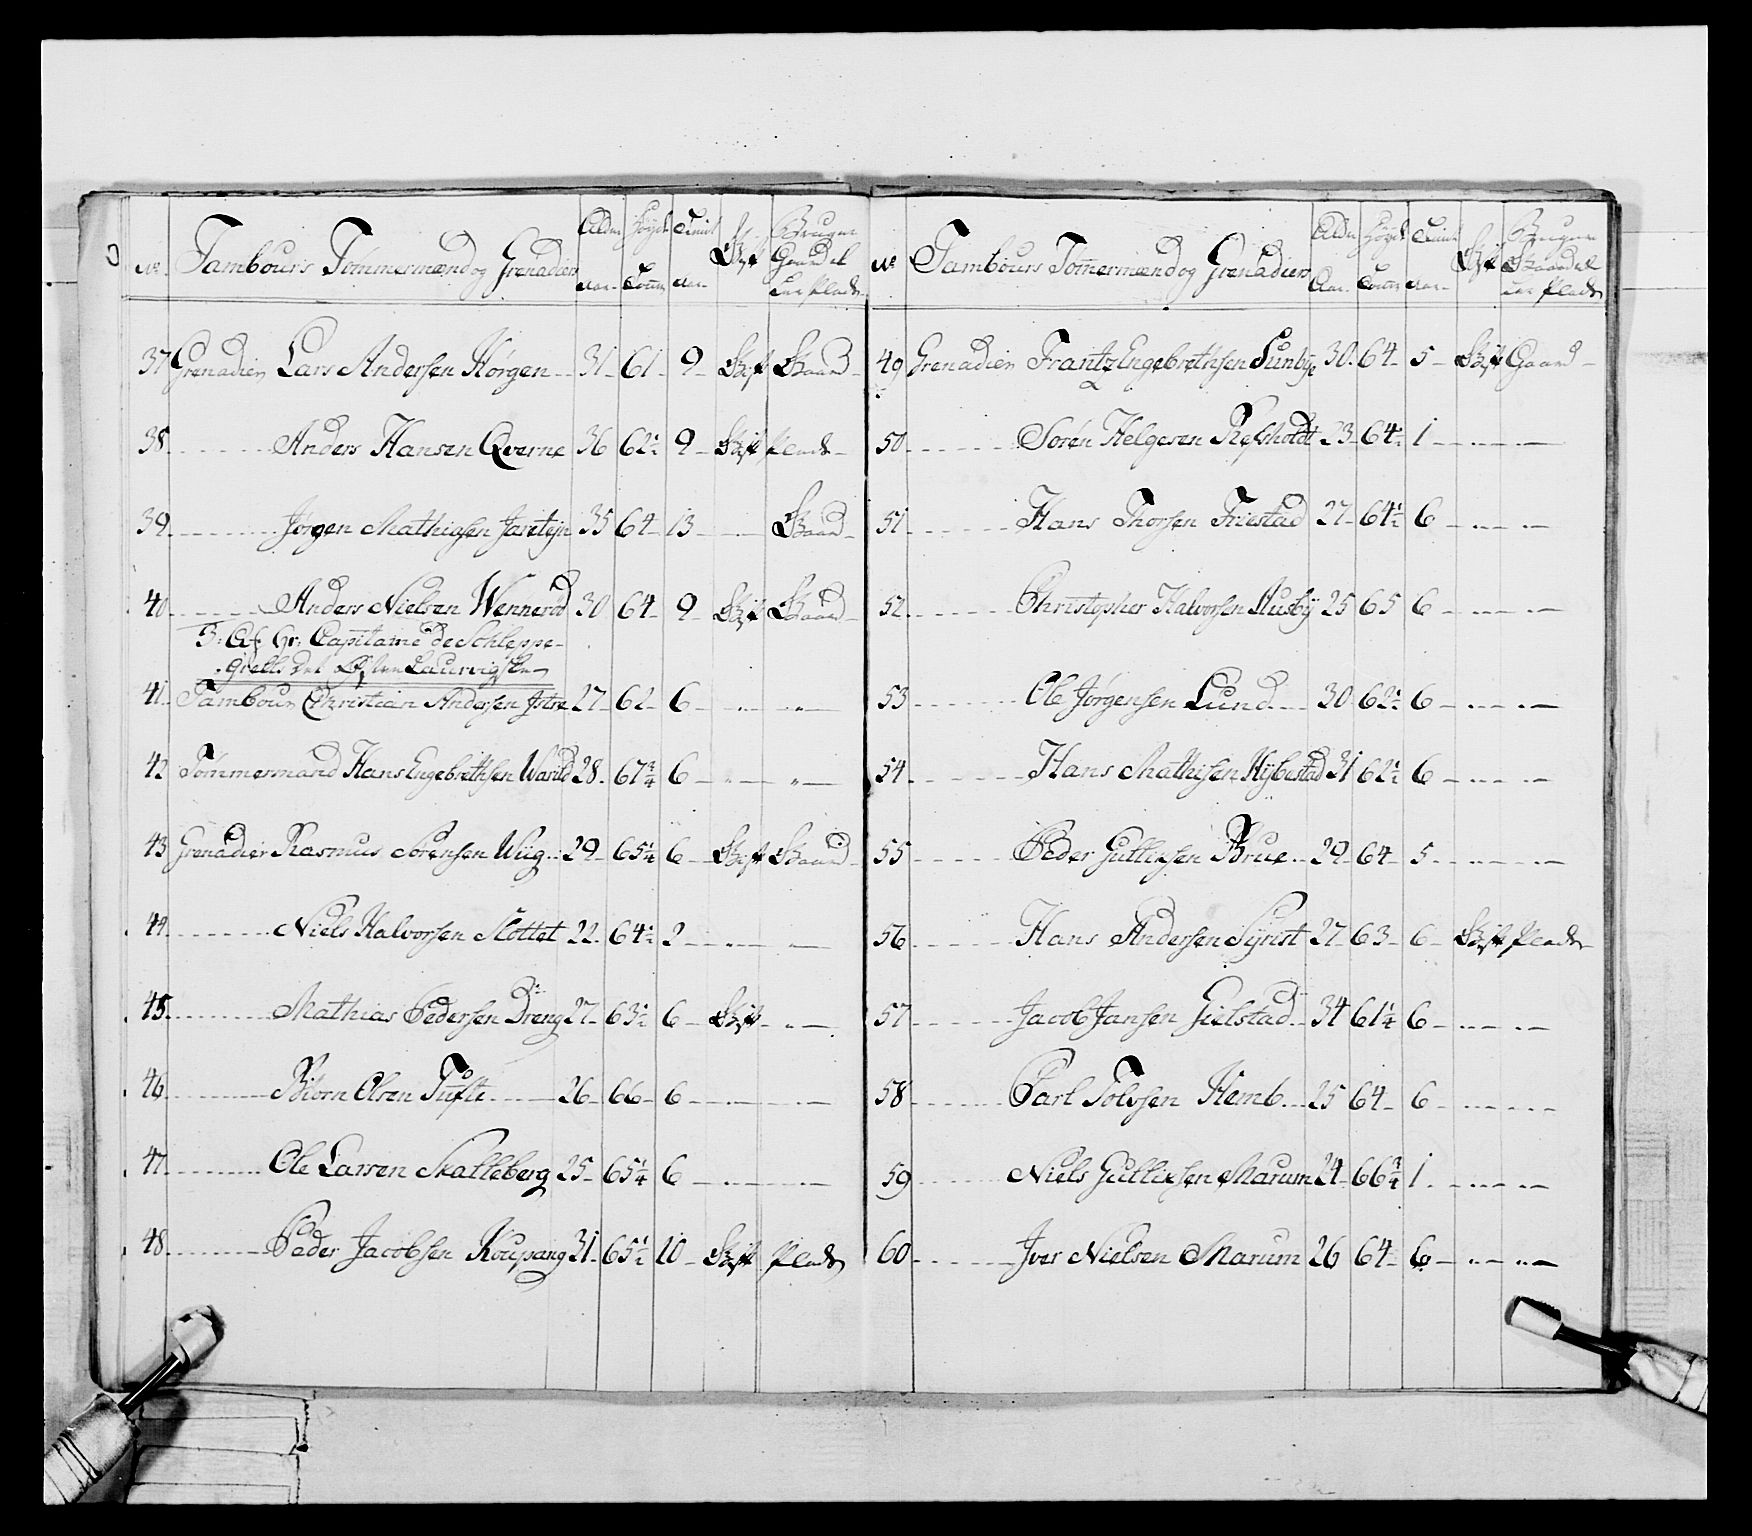 No. Tambours Tømmermænd og Grenadiers Alder Aar. Høyde Tomm. Tient Aar. Gift Bruger Gaard el. Plads
37 Grenadier Lars Andersen Hørgen 31 61 9 Gift Gaard
38 Anders Hansen Qverne 36 62½ 9 Gift Plads
39 Jørgen Mathiasen 35 64 13 — Gaard
40 Anders Nielsen Wennerød 30 64 9 Gift Gaard
3: Af Hr. Capitaine de Schleppe-
grells det Laurvigske
41 Tambour Christian Andersen Istre 27 62 6 — " — — " —
42 Tømmermand Hans Engebrethsen Warild 28 67¾ 6 — " — — " —
43 Grenadier Rasmus Sørensen Wiig 29 65¼ 6 Gift Gaard
44 Niels Halvorsen Slottet 22 64½ 2
45 Mathias Pedersen Dreng 27 63½ 6 Gift
46 Biørn Olsen Tufte 26 66 6
47 Ole Larsen Skalleberg 25 65¼ 6
48 Peder Jacobsen Koupang 31 65½ 10 Gift Plads
No. Tambours Tømmermænd og Grenadiers Alder Aar. Høyde Tomm. Tient Aar. Gift Bruger Gaard el. Plads
49 Grenadier Frantz Engebrethsen Sunbye 30 64 5 Gift Gaard
50 Søren Helgesen Refsholdt 23 64½ 1
51 Hans Thorsen Friestad 27 64½ 6
52 Christopher Halvorsen Ausby 25 65 6
53 Ole Jørgensen Lund 30 62½ 6
54 Hans Mathisen Hybestad 31 62½ 6
55 Peder Gulliksen Brue 29 64 5
56 Hans Andersen Syrist 27 63 6 Gift Plads
57 Jacob Jansen Gielstad 34 61¼ 6
58 Carl Tolvsen Hemb 25 64 6
59 Niels Gulliksen Marum 24 66¾ 1
60 Iver Nielsen Marum 26 64 6